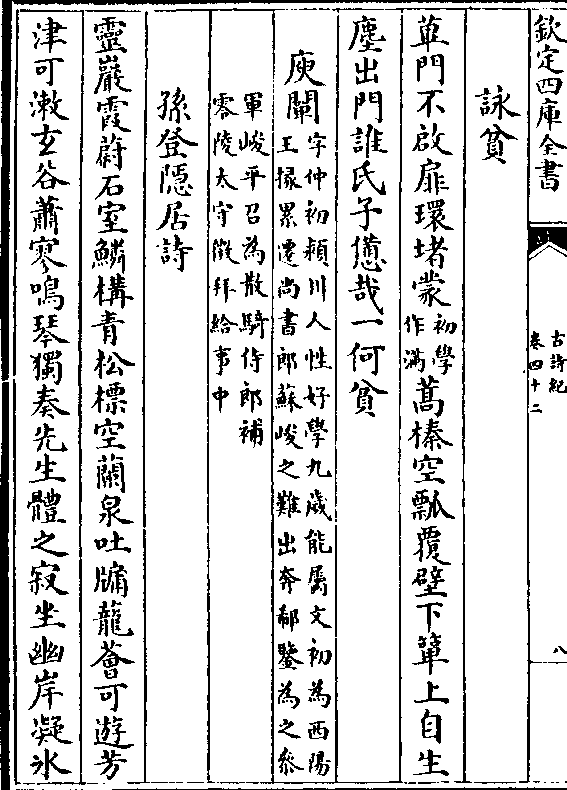 欽定四庫全書
古詩紀
卷四十二
八
詠貧
蓽門不啟扉環堵蒙
初學
作滿
蒿榛空瓢覆壁下簞上自生
塵出門誰氏子憊哉一何貧
庾闡
字仲初潁川人性好學九歲能屬文初為西陽
王掾累遷尚書郎蘇峻之難出奔郗鑒為之參
軍峻平召為散騎侍郎補
零陵太守徵拜給事中
孫登隱居詩
靈巖霞蔚石室鱗構青松標空蘭泉吐牖蘢薈可遊芳
津可漱玄谷蕭寥鳴琴獨奏先生體之寂坐幽岸凝冰